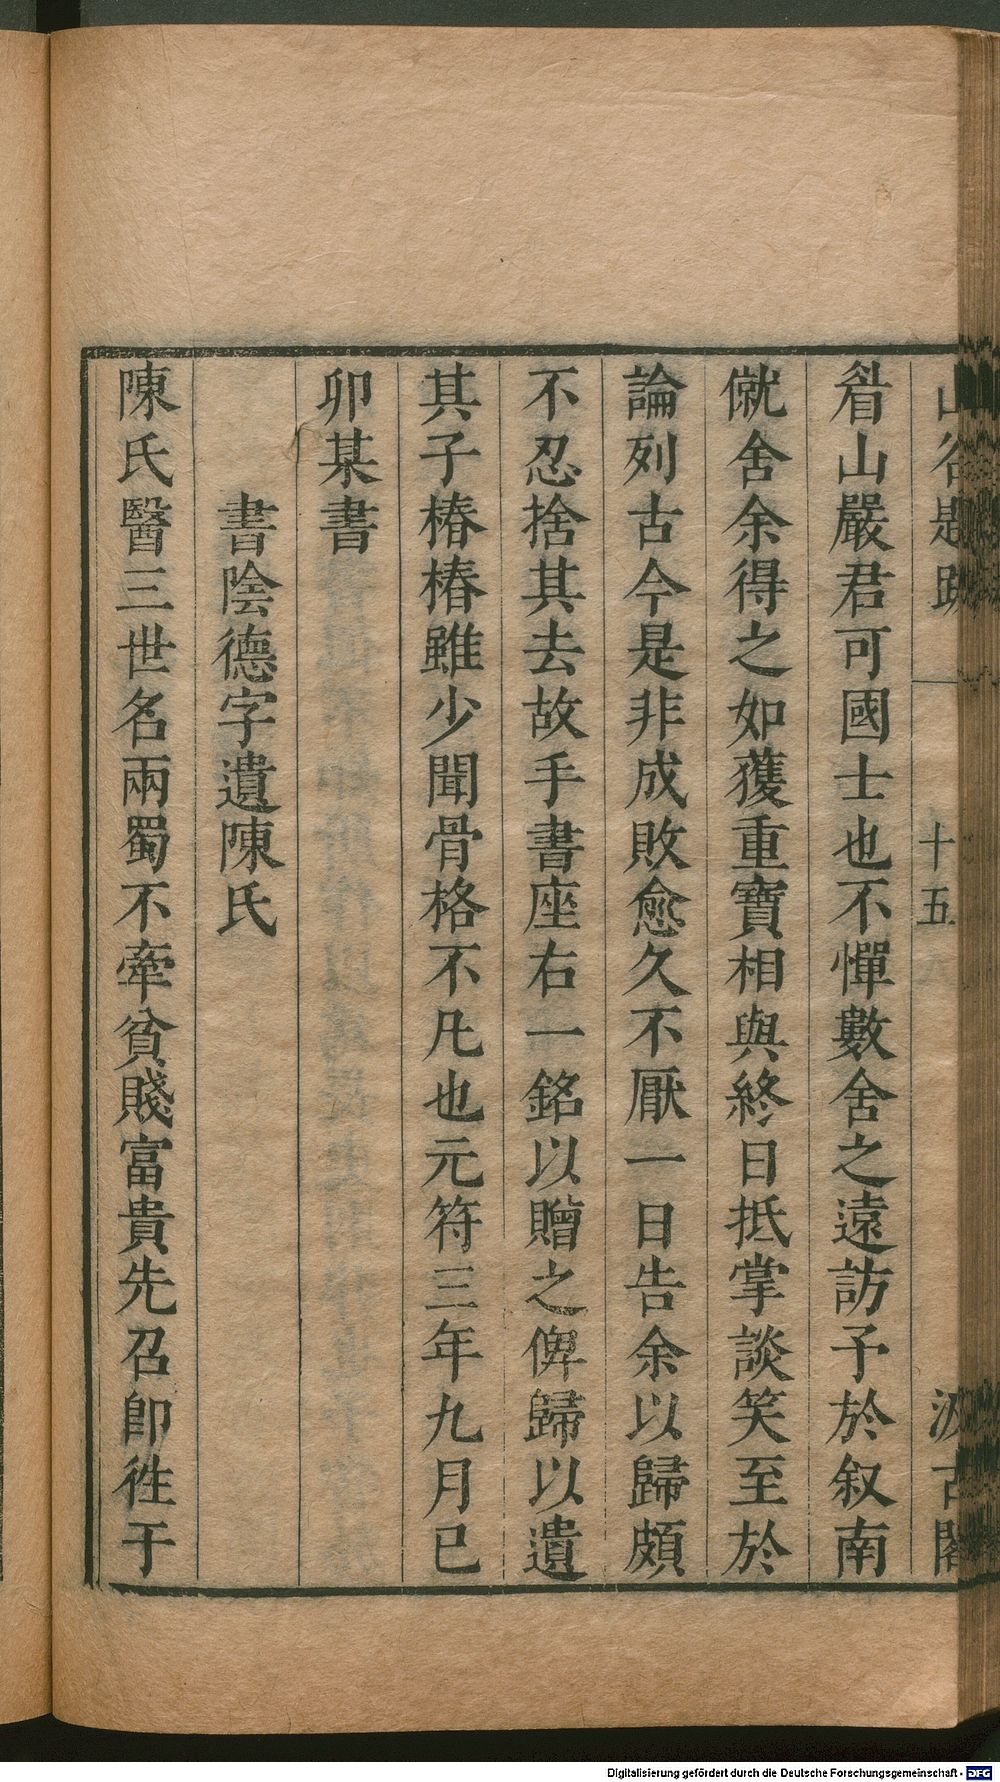 山谷題跋 十五 汲古閣
眉山嚴君可國士也不憚數舍之遠訪予於叙南
僦舍余得之如獲重寶相與終日抵掌談笑至於
論列古今是非成敗愈久不厭一日告余以歸頗
不忍捨其去故手書座右一銘以贈之俾歸以遺
其子椿椿雖少聞骨格不凡也元符三年九月巳
卯某書
書陰德字遺陳氏
陳氏醫三世名兩蜀不牽貧賤富貴先召卽徃于
Digitalisierung gefördert durch die Deutsche Forschungsgemeinschaft - DFG